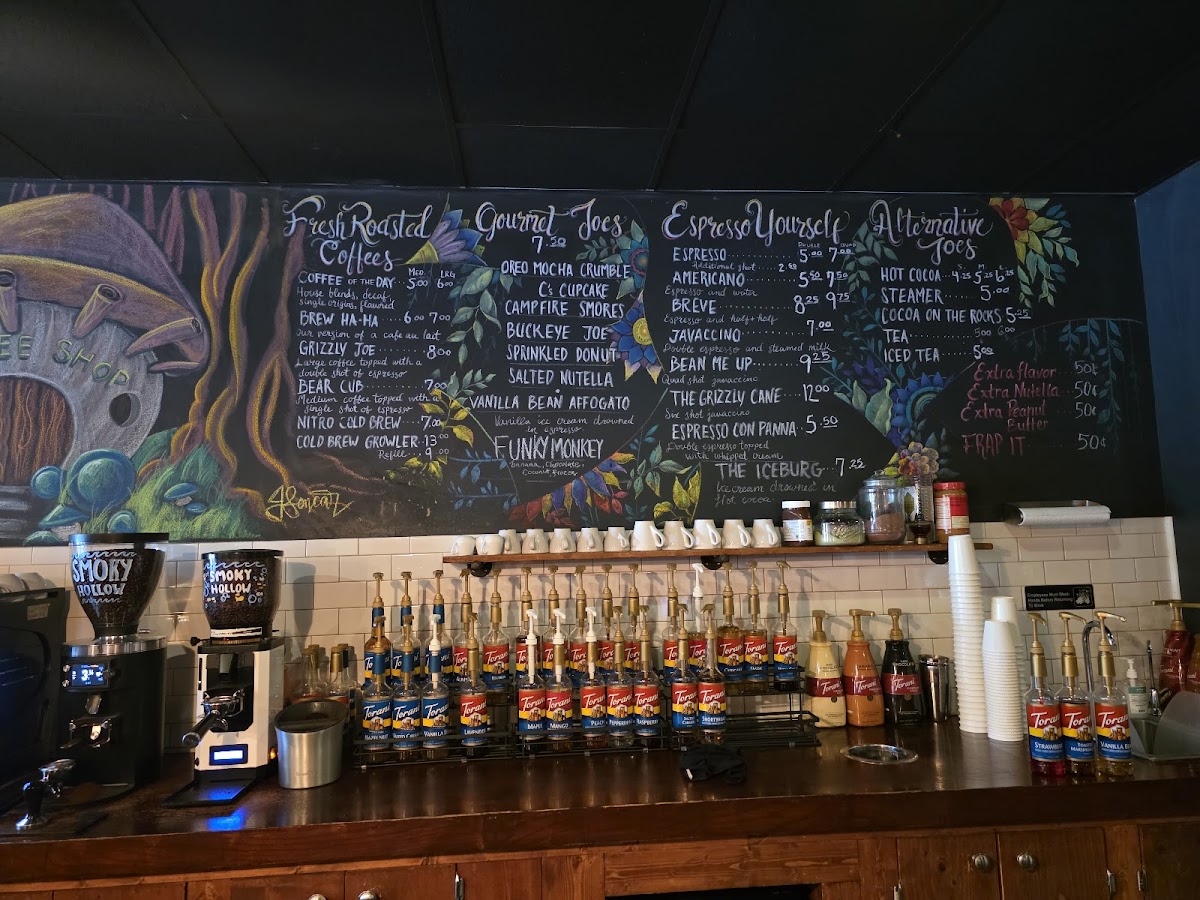 EE SHOP
Fresh Roasted
Coffees
MED. LRG.
COFFEE OF THE DAY 5.00 6.00
House blends, decaf,
Single origins, flavored
BREW HA-HA 6.00 7.00
Our version of a cafe au lait
GRIZZLY JOE 8.00
Large coffee topped with a
double shot of espresso
BEAR CUB 7.00
Medium coffee topped with a
single shot of espresso
NITRO COLD BREW 7.00
COLD BREW GROWLER 13.00
Refill 9.00
Gourmet Joes
7.50
OREO MOCHA CRUMBLE
C's CUPCAKE
CAMPFIRE SMORES
BUCKEYE JOE
SPRINKLED DONUT
SALTED NUTELLA
VANILLA BEAN AFFOGATO
Vanilla ice cream drowned
in espresso
FUNKY MONKEY
banana, chocolate,
Coconut
Espresso Yourself
DOUBLE QUAD
ESPRESSO 5.00 7.00
Additional shot
AMERICANO 5.50 7.50
Espresso and water
BREVE 8.25 9.75
Espresso and half+half
JAVACCINO 7.00
Double espresso and steamed milk
BEAN ME UP 9.25
Quad shot javaccino
THE GRIZZLY CANE 12.00
Six shot javaccino
ESPRESSO CON PANNA 5.50
Double espresso topped
with whipped cream
THE ICEBURG 7.25
Ice cream drowned in
Hot cocoa
Alternative
Joes
HOT COCOA
STEAMER 5.00
COCOA ON THE ROCKS 5.25
TEA 5.00 6.00
ICED TEA 5.00
Extra flavor 50¢
Extra Nutella 50¢
Extra Peanut
Butter 50¢
FRAP IT 50¢
SMOKY
HOLLOW
SMOKY
HOLLOW
Employees Must Wash
Hands Before Returning
To Work
Torani
Torani
Torani
Torani
Torani
Torani
MANGO
Torani
Torani
Torani
RASPBERRY
Torani
Torani
Torani
Torani
Torani
Torani
Torani
Torani
VANILLA BEAN